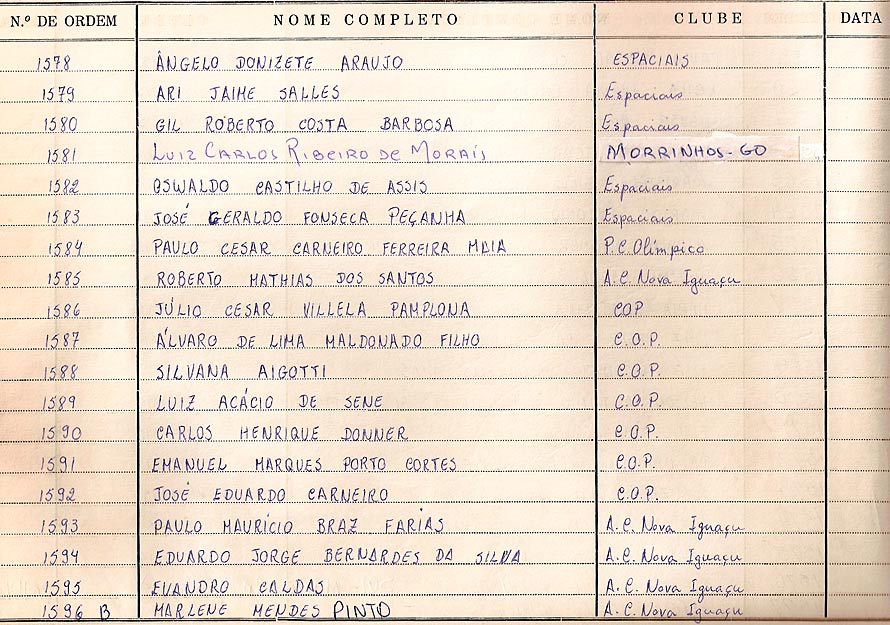 N.º DE ORDEM NOME COMPLETO CLUBE DATA
1578 ÂNGELO DONIZETE ARAUJO ESPACIAIS
1579 ARI JAIME SALLES Espaciais
1580 GIL ROBERTO COSTA BARBOSA Espaciais
1581 LUIZ CARLOS RIBEIRO DE MORAIS MORRINHOS-GO
1582 OSWALDO CASTILHO DE ASSIS Espaciais
1583 JOSÉ GERALDO FONSECA PEÇANHA Espaciais
1584 PAULO CESAR CARNEIRO FERREIRA MAIA P.C. Olímpico
1585 ROBERTO MATHIAS DOS SANTOS A.C. Nova Iguaçu
1586 JÚLIO CESAR VILLELA PAMPLONA COP
1587 ÁLVARO DE LIMA MALDONADO FILHO C.O.P.
1588 SILVANA AIGOTTI C.O.P.
1589 LUIZ ACÁCIO DE SENE C.O.P.
1590 CARLOS HENRIQUE DONNER C.O.P.
1591 EMANUEL MARQUES PORTO CORTES C.O.P.
1592 JOSÉ EDUARDO CARNEIRO C.O.P.
1593 PAULO MAURÍCIO BRAZ FARIAS A.C. Nova Iguaçu
1594 EDUARDO JORGE BERNARDES DA SILVA A.C. Nova Iguaçu
1595 EVANDRO CALDAS A.C. Nova Iguaçu
1596 B MARLENE MENDES PINTO A.C. Nova Iguaçu